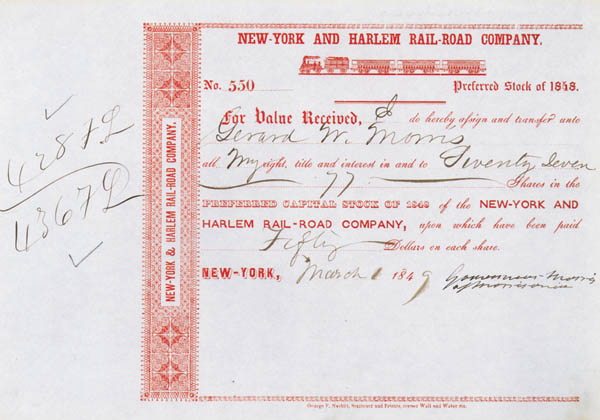 NEW-YORK AND HARLEM RAIL-ROAD COMPANY.
No. 550 Preferred Stock of 1848.
For Value Received, I do hereby asign and transfer unto
Gerard W. Morris
all My right, title and interest in and to Seventy Seven
77 Shares in the
PREFERRED CAPITAL STOCK OF 1848 of the NEW-YORK AND
HARLEM RAIL-ROAD COMPANY, upon which have been paid
Fifty Dollars on each share.
NEW-YORK, March 1 1849 Gouverneur Morris
of Morrisania
NEW-YORK & HARLEM RAIL-ROAD COMPANY.
George F. Nesbitt, Stationer and Printer, corner Wall and Water sts.